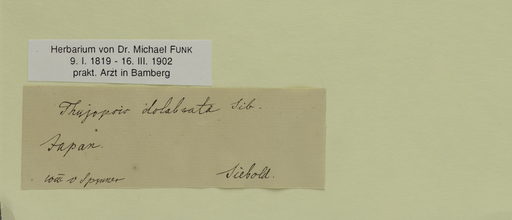 Herbarium von Dr. Michael FUNK
9. I. 1819 - 16. III. 1902
prakt. Arzt in Bamberg
Thujopsis dolabrata Sib.
Japan.
Siebold.
v Spruner